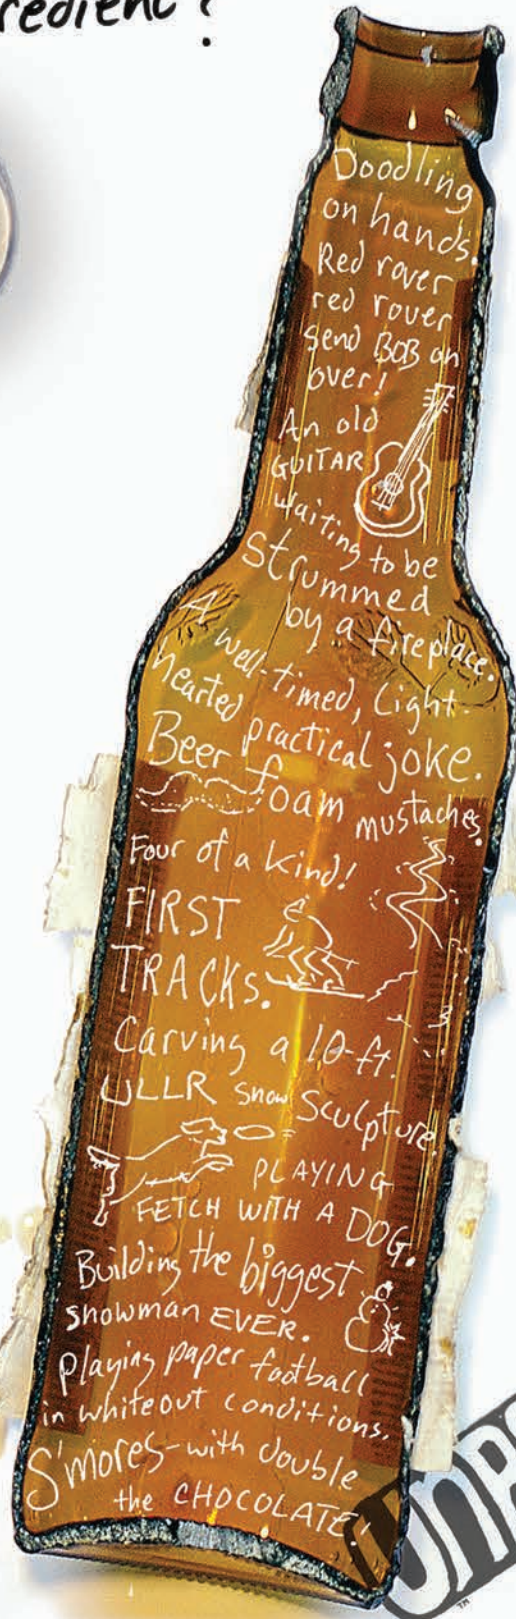 redient?
Doodling
on hands.
Red rover
red rover
send BOB on
over!
An old
GUITAR
waiting to be
strummed
by a fireplace.
A well-timed, light-
hearted practical joke.
Beer foam mustaches.
Four of a kind!
FIRST
TRACKS.
Carving a 10-ft.
ULLR snow sculpture.
PLAYING
FETCH WITH A DOG.
Building the biggest
snowman EVER.
Playing paper football
in whiteout conditions.
S'mores-with double
the CHOCOLATE.
TM